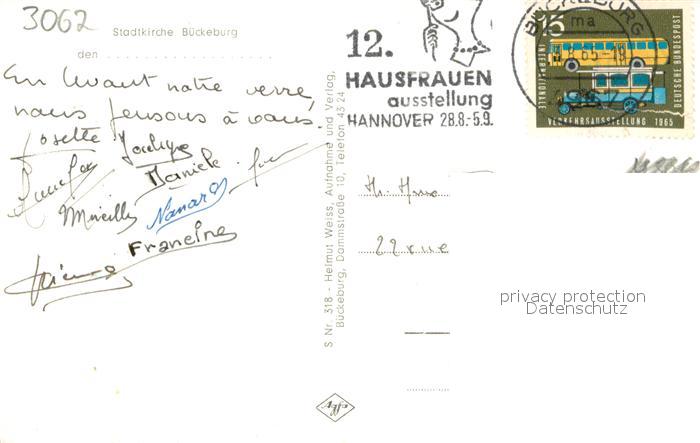 3062
Stadtkirche Bückeburg
den
En levant notre verre,
nous pensons à vous.
Josette
Danièle
Mireille
Nanard
Francine
S Nr. 318 - Helmut Weiss, Aufnahme und Verlag,
Bückeburg, Dammstraße 10, Telefon 43 24
12.
HAUSFRAUEN
ausstellung
HANNOVER 28.8.-5.9.
BÜCKEBURG
15
INTERNATIONALE
VERKEHRSAUSSTELLUNG 1965
DEUTSCHE BUNDESPOST
22 rue
privacy protection
Datenschutz
Agfa